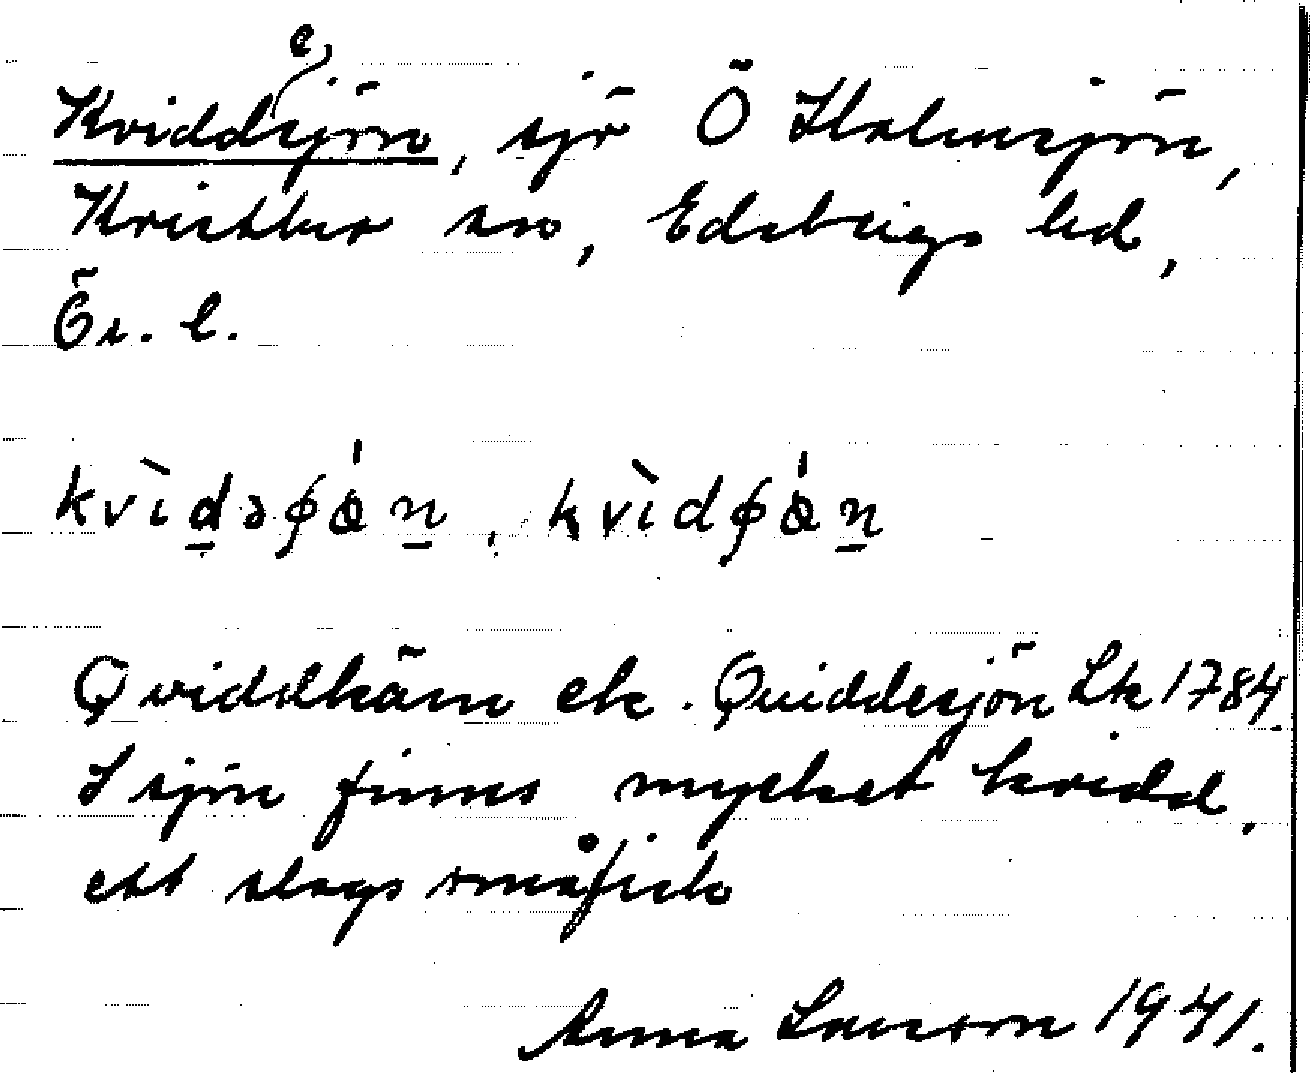 Kvidd(e)sjön, sjö Ö Halmsjön,
Kvistbro sn, Edsbergs hd,
Ör. l.
kvìdəʃɵ́n, kvìdʃɵ́n
Qviddkärn ek. Quiddesjön Lk 1784.
I sjön finns mycket kvidd,
ett slags småfisk
Anna Larsson 1941.